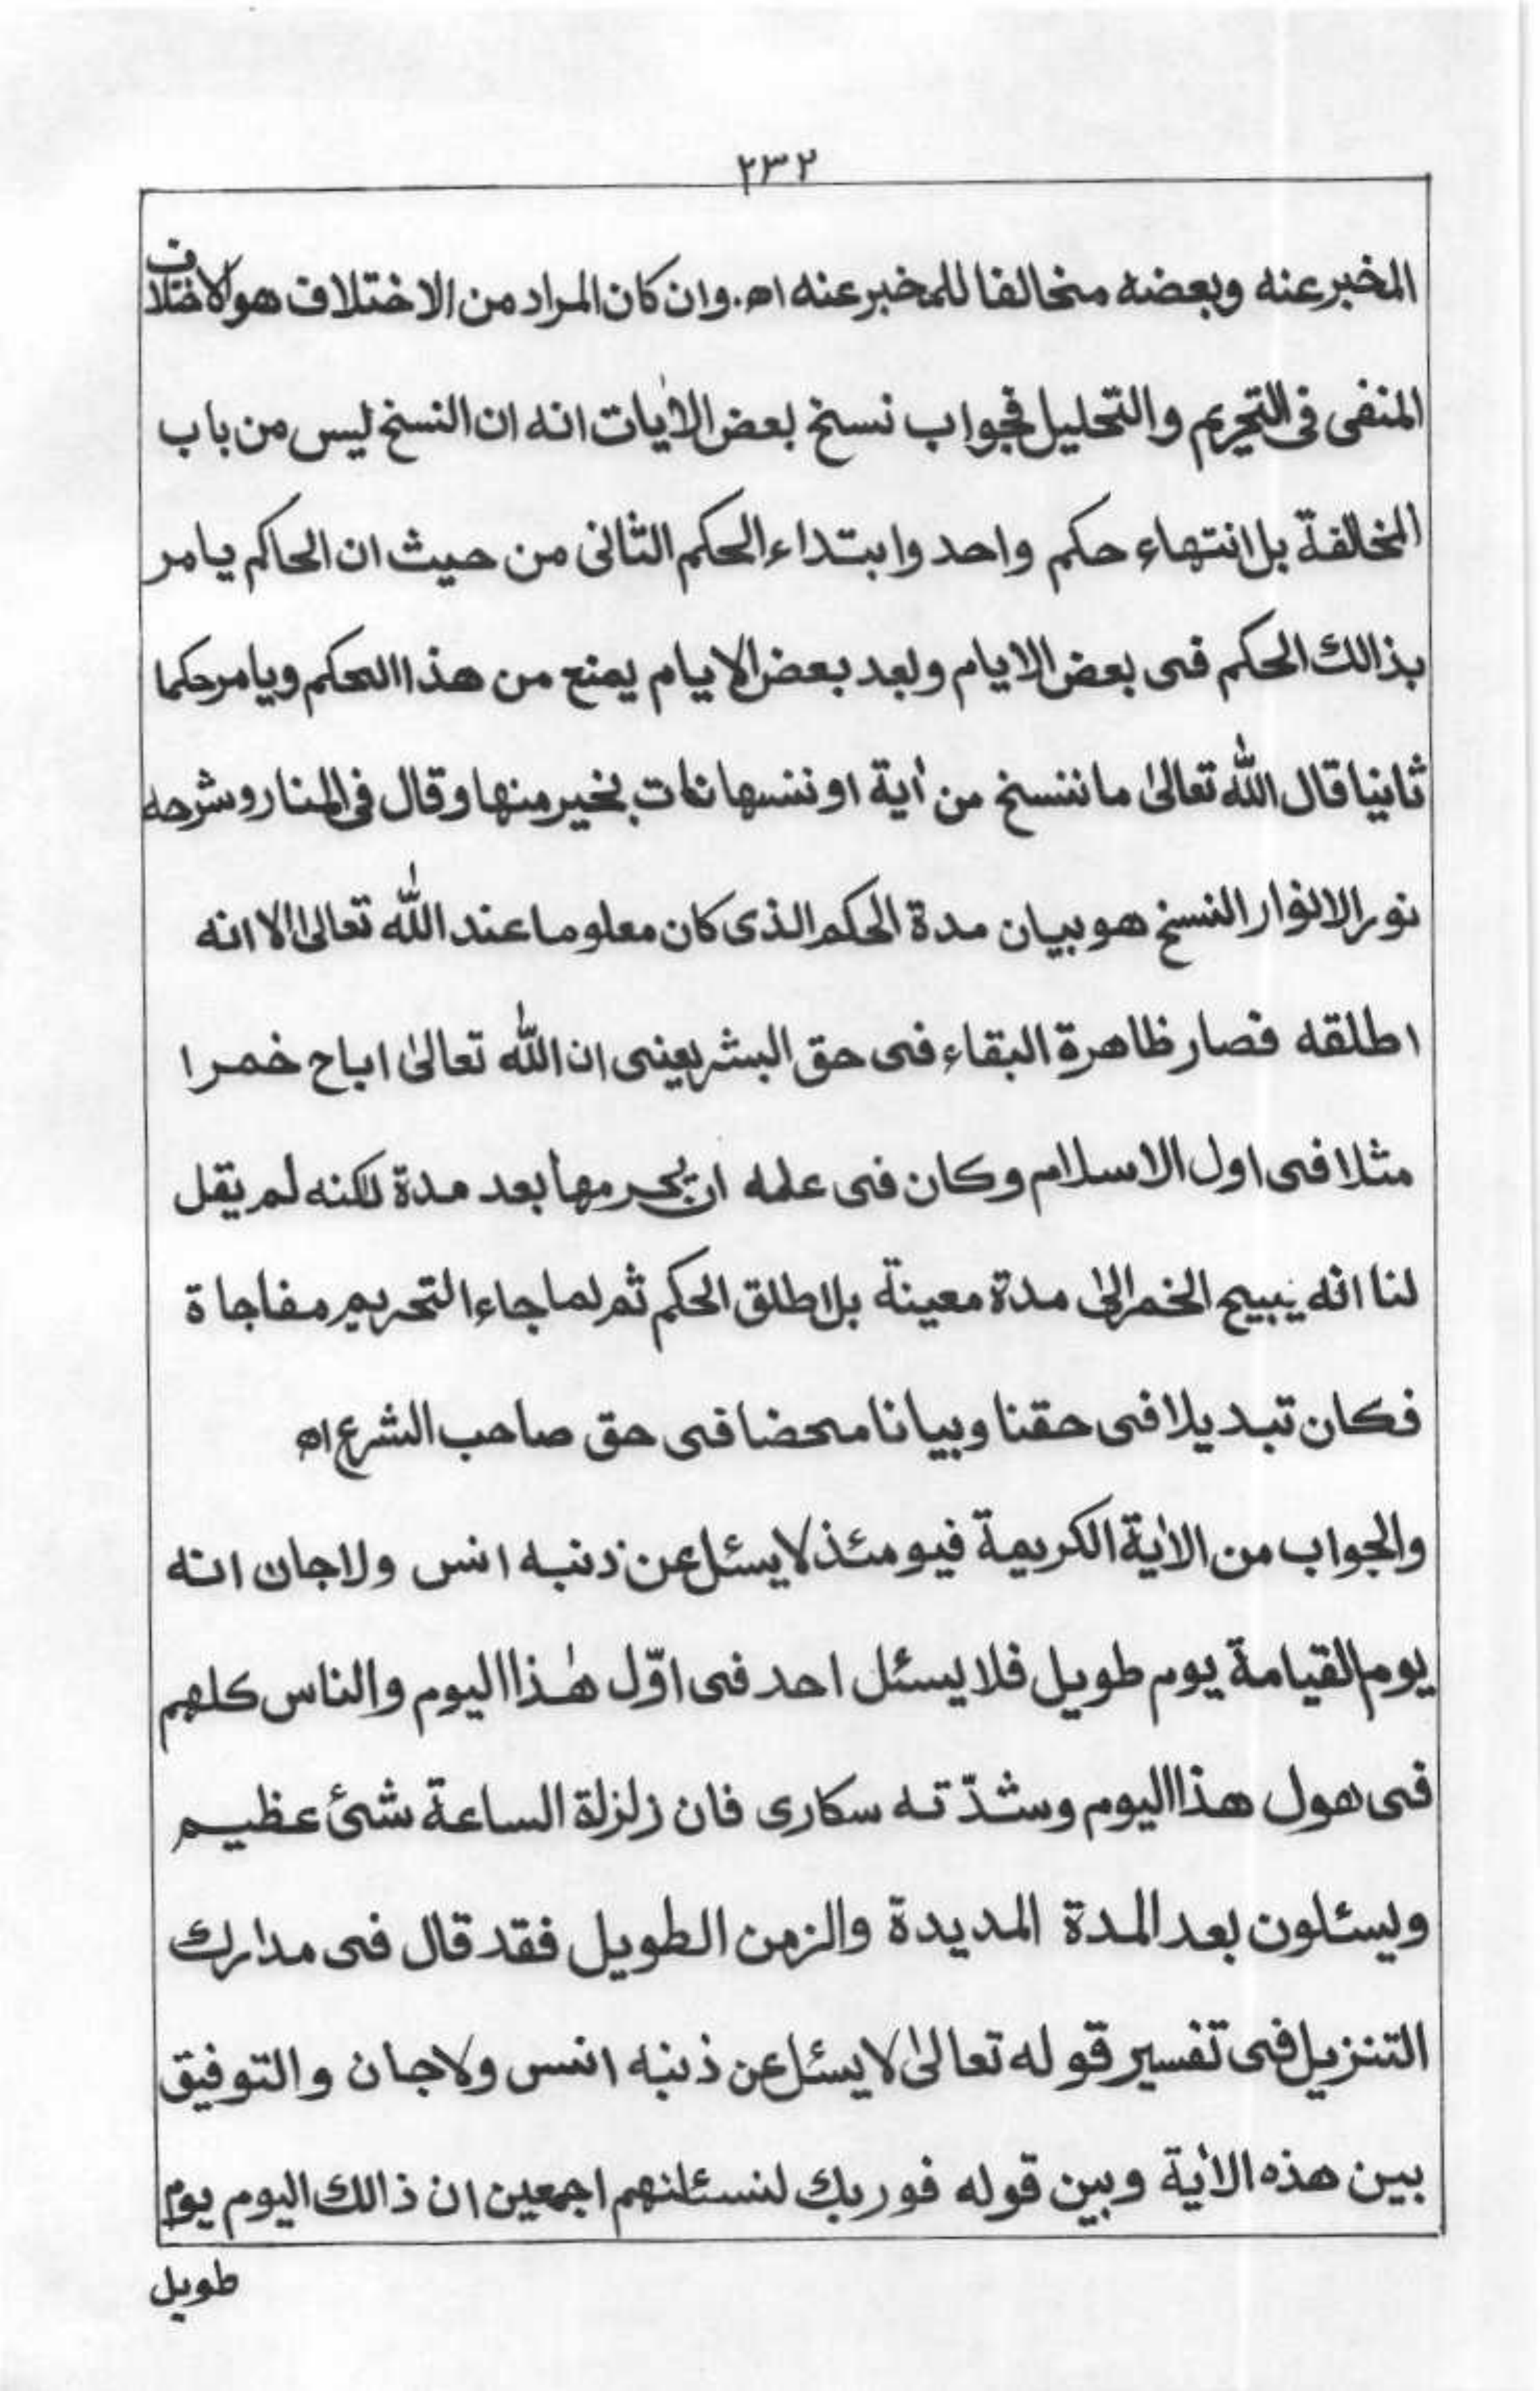 ٢٣٢
المخبر عنه وبعضه مخالفا للمخبر عنه اه. وان كان المراد من الاختلاف هو الاختلاف
المنفى فى التحريم والتحليل فجواب نسخ بعض الاٰيات انه ان النسخ ليس من باب
المخالفة بل انتهاء حكم واحد وابتداء الحكم الثانى من حيث ان الحاكم يامر
بذالك الحكم فى بعض الايام وبعد بعض الايام يمنع من هذا الحكم ويامر حكما
ثانيا قال الله تعالىٰ ما ننسخ من اٰية او ننسها نات بخير منها وقال فى المنار وشرحه
نور الانوار النسخ هو بيان مدة الحكم الذى كان معلوما عند الله تعالىٰ الا انه
اطلقه فصار ظاهرة البقاء فى حق البشر يعنى ان الله تعالىٰ اباح خمرا
مثلا فى اول الاسلام وكان فى علمه ان يحرمها بعد مدة لكنه لم يقل
لنا انه يبيح الخمر الىٰ مدة معينة بل اطلق الحكم ثم لما جاء التحريم مفاجاة
فكان تبديلا فى حقنا وبيانا محضا فى حق صاحب الشرع اه
والجواب من الاٰية الكريمة فيومئذ لا يسئل عن ذنبه انس ولا جان انه
يوم القيامة يوم طويل فلا يسئل احد فى اوّل هٰذا اليوم والناس كلهم
فى هول هذا اليوم وشدّته سكارى فان زلزلة الساعة شئ عظيم
ويسئلون بعد المدة المديدة والزمن الطويل فقد قال فى مدارك
التنزيل فى تفسير قوله تعالىٰ لا يسئل عن ذنبه انس ولا جان والتوفيق
بين هذه الاٰية وبين قوله فوربك لنسئلنهم اجمعين ان ذالك اليوم يوم
طويل